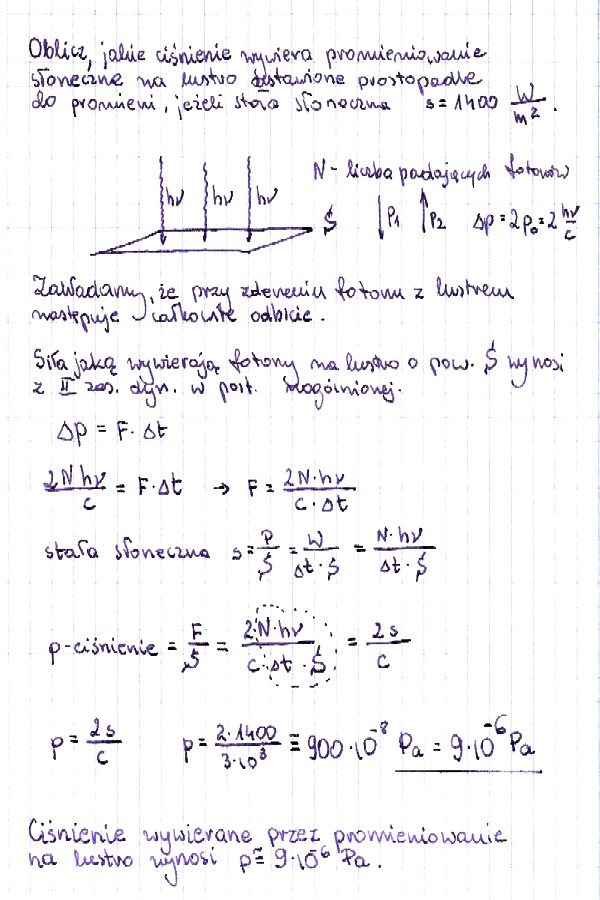 Oblicz, jakie ciśnienie wywiera promieniowanie
słoneczne na lustro ustawione prostopadle
do promieni, jeżeli stała słoneczna s = 1400 W/m².
N - liczba padających fotonów
hν hν hν S p₁ p₂ Δp = 2p₀ = 2 hν/c
Zakładamy, że przy zderzeniu fotonu z lustrem
następuje całkowite odbicie.
Siła jaką wywierają fotony na lustro o pow. S wynosi
z II zas. dyn. w post. uogólnionej.
Δp = F · Δt
2Nhν/c = F·Δt → F = 2N·hν/(c·Δt)
stała słoneczna s = P/S = W/(Δt·S) = N·hν/(Δt·S)
p - ciśnienie = F/S = 2·N·hν/(c·Δt·S) = 2s/c
p = 2s/c p = 2·1400/(3·10⁸) ≅ 900·10⁻⁸ Pa = 9·10⁻⁶ Pa
Ciśnienie wywierane przez promieniowanie
na lustro wynosi p ≅ 9·10⁻⁶ Pa.